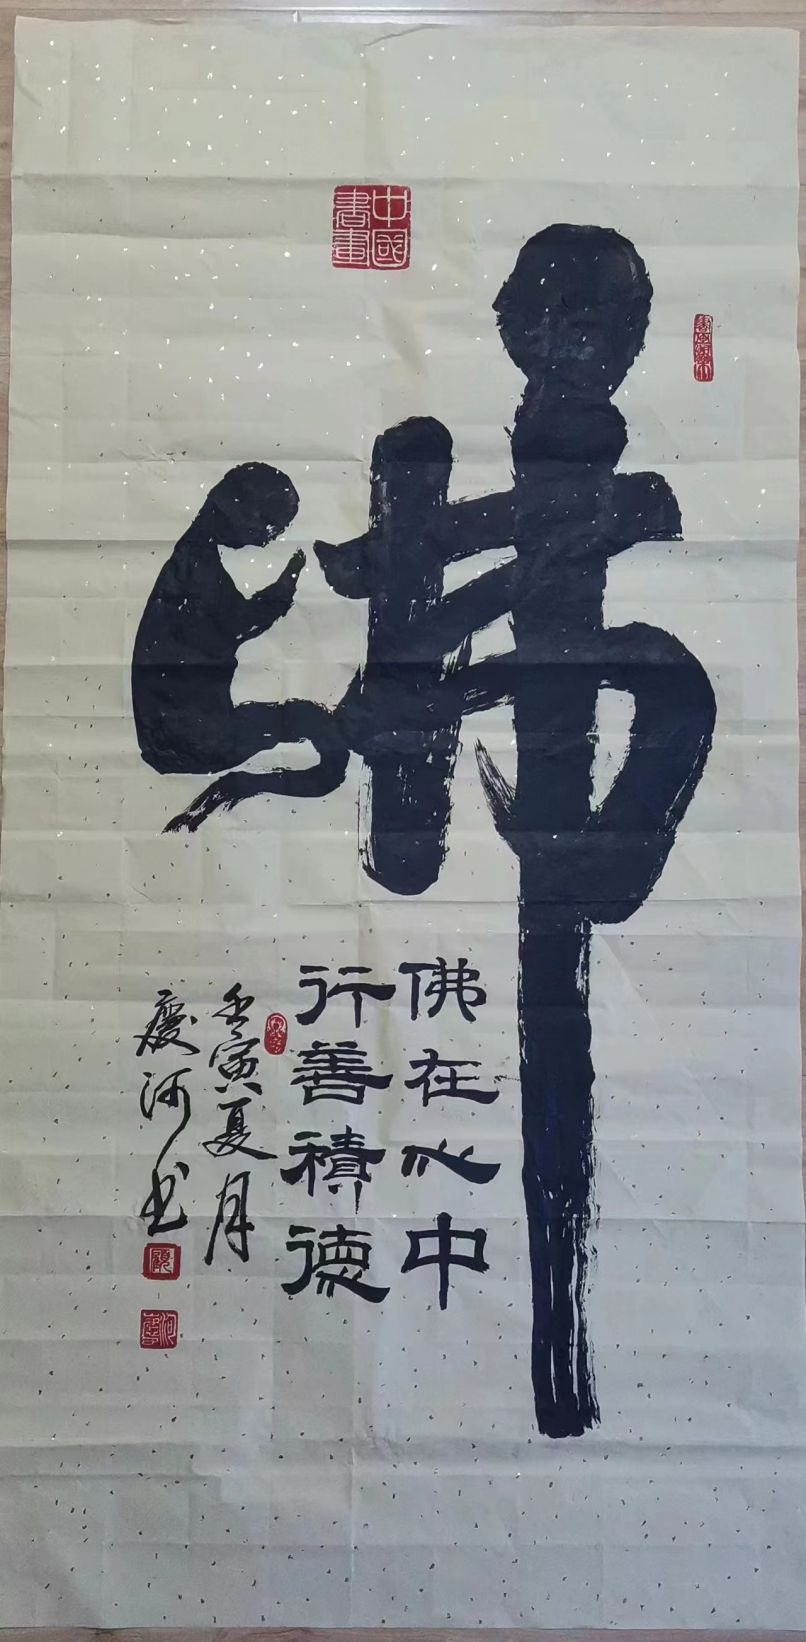 佛
中國書畫
佛在心中
行善積德
壬寅夏月
慶河书